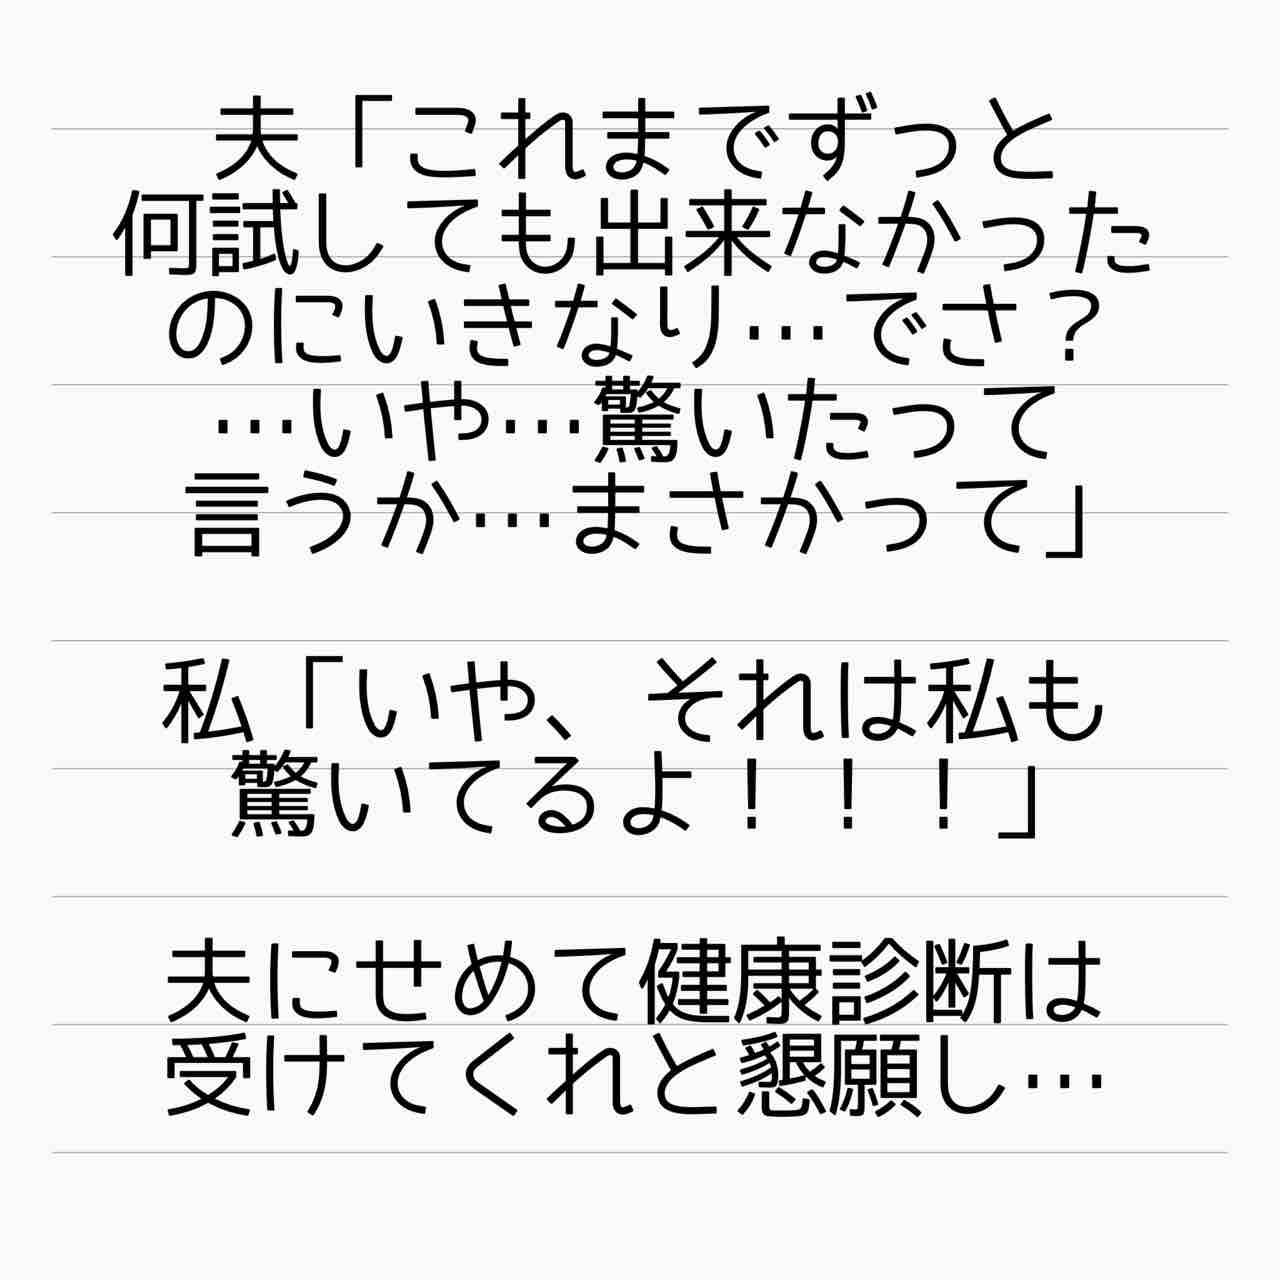 夫「これまでずっと
何試しても出来なかった
のにいきなり…でさ？
…いや…驚いたって
言うか…まさかって」
私「いや、それは私も
驚いてるよ！！！」
夫にせめて健康診断は
受けてくれと懇願し…